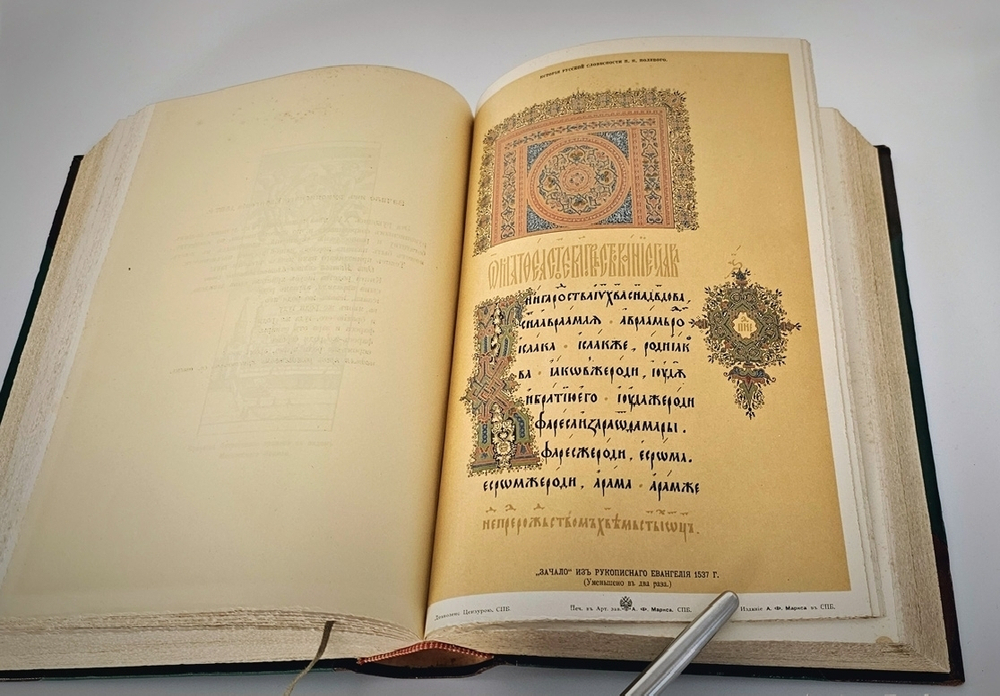 ИСТОРІЯ РУССКОЙ СЛОВЕСНОСТИ П. Н. ПОЛЕВОГО.
нигаростваіѵ҃хв҃аснад҃вдова
сн҃аавраамлѧ · авраамьро
ісаака · ісаакже , родиіак
ва · іаковжероди , іоудѫ
ибратіюего · іоудажероди
фаресаизараѿѳамары .
фаресжероди , есрома .
есромжероди , арама · арамже
„ЗАЧАЛО“ ИЗЪ РУКОПИСНАГО ЕВАНГЕЛІЯ 1537 Г.
(Уменьшено въ два раза.)
Дозволено Цензурою, СПБ.
Печ. въ Арт. зав. А. Ф. Маркса, СПБ.
Изданіе А. Ф. Маркса въ СПБ.